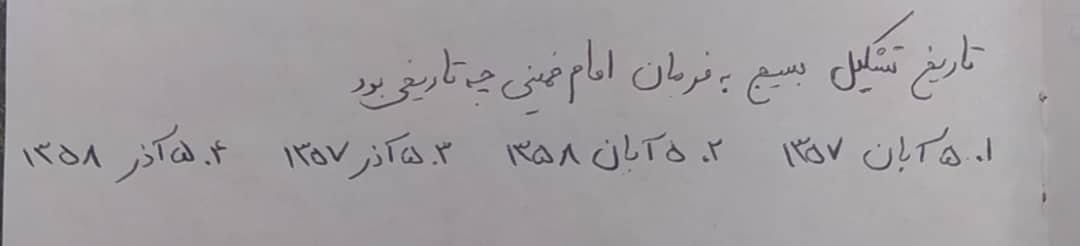 تاریخ تشکیل بسیج به فرمان امام خمینی چه تاریخی بود
۱. ۵ آبان ۱۳۵۷ ۲. ۵ آبان ۱۳۵۸ ۳. ۵ آذر ۱۳۵۷ ۴. ۵ آذر ۱۳۵۸